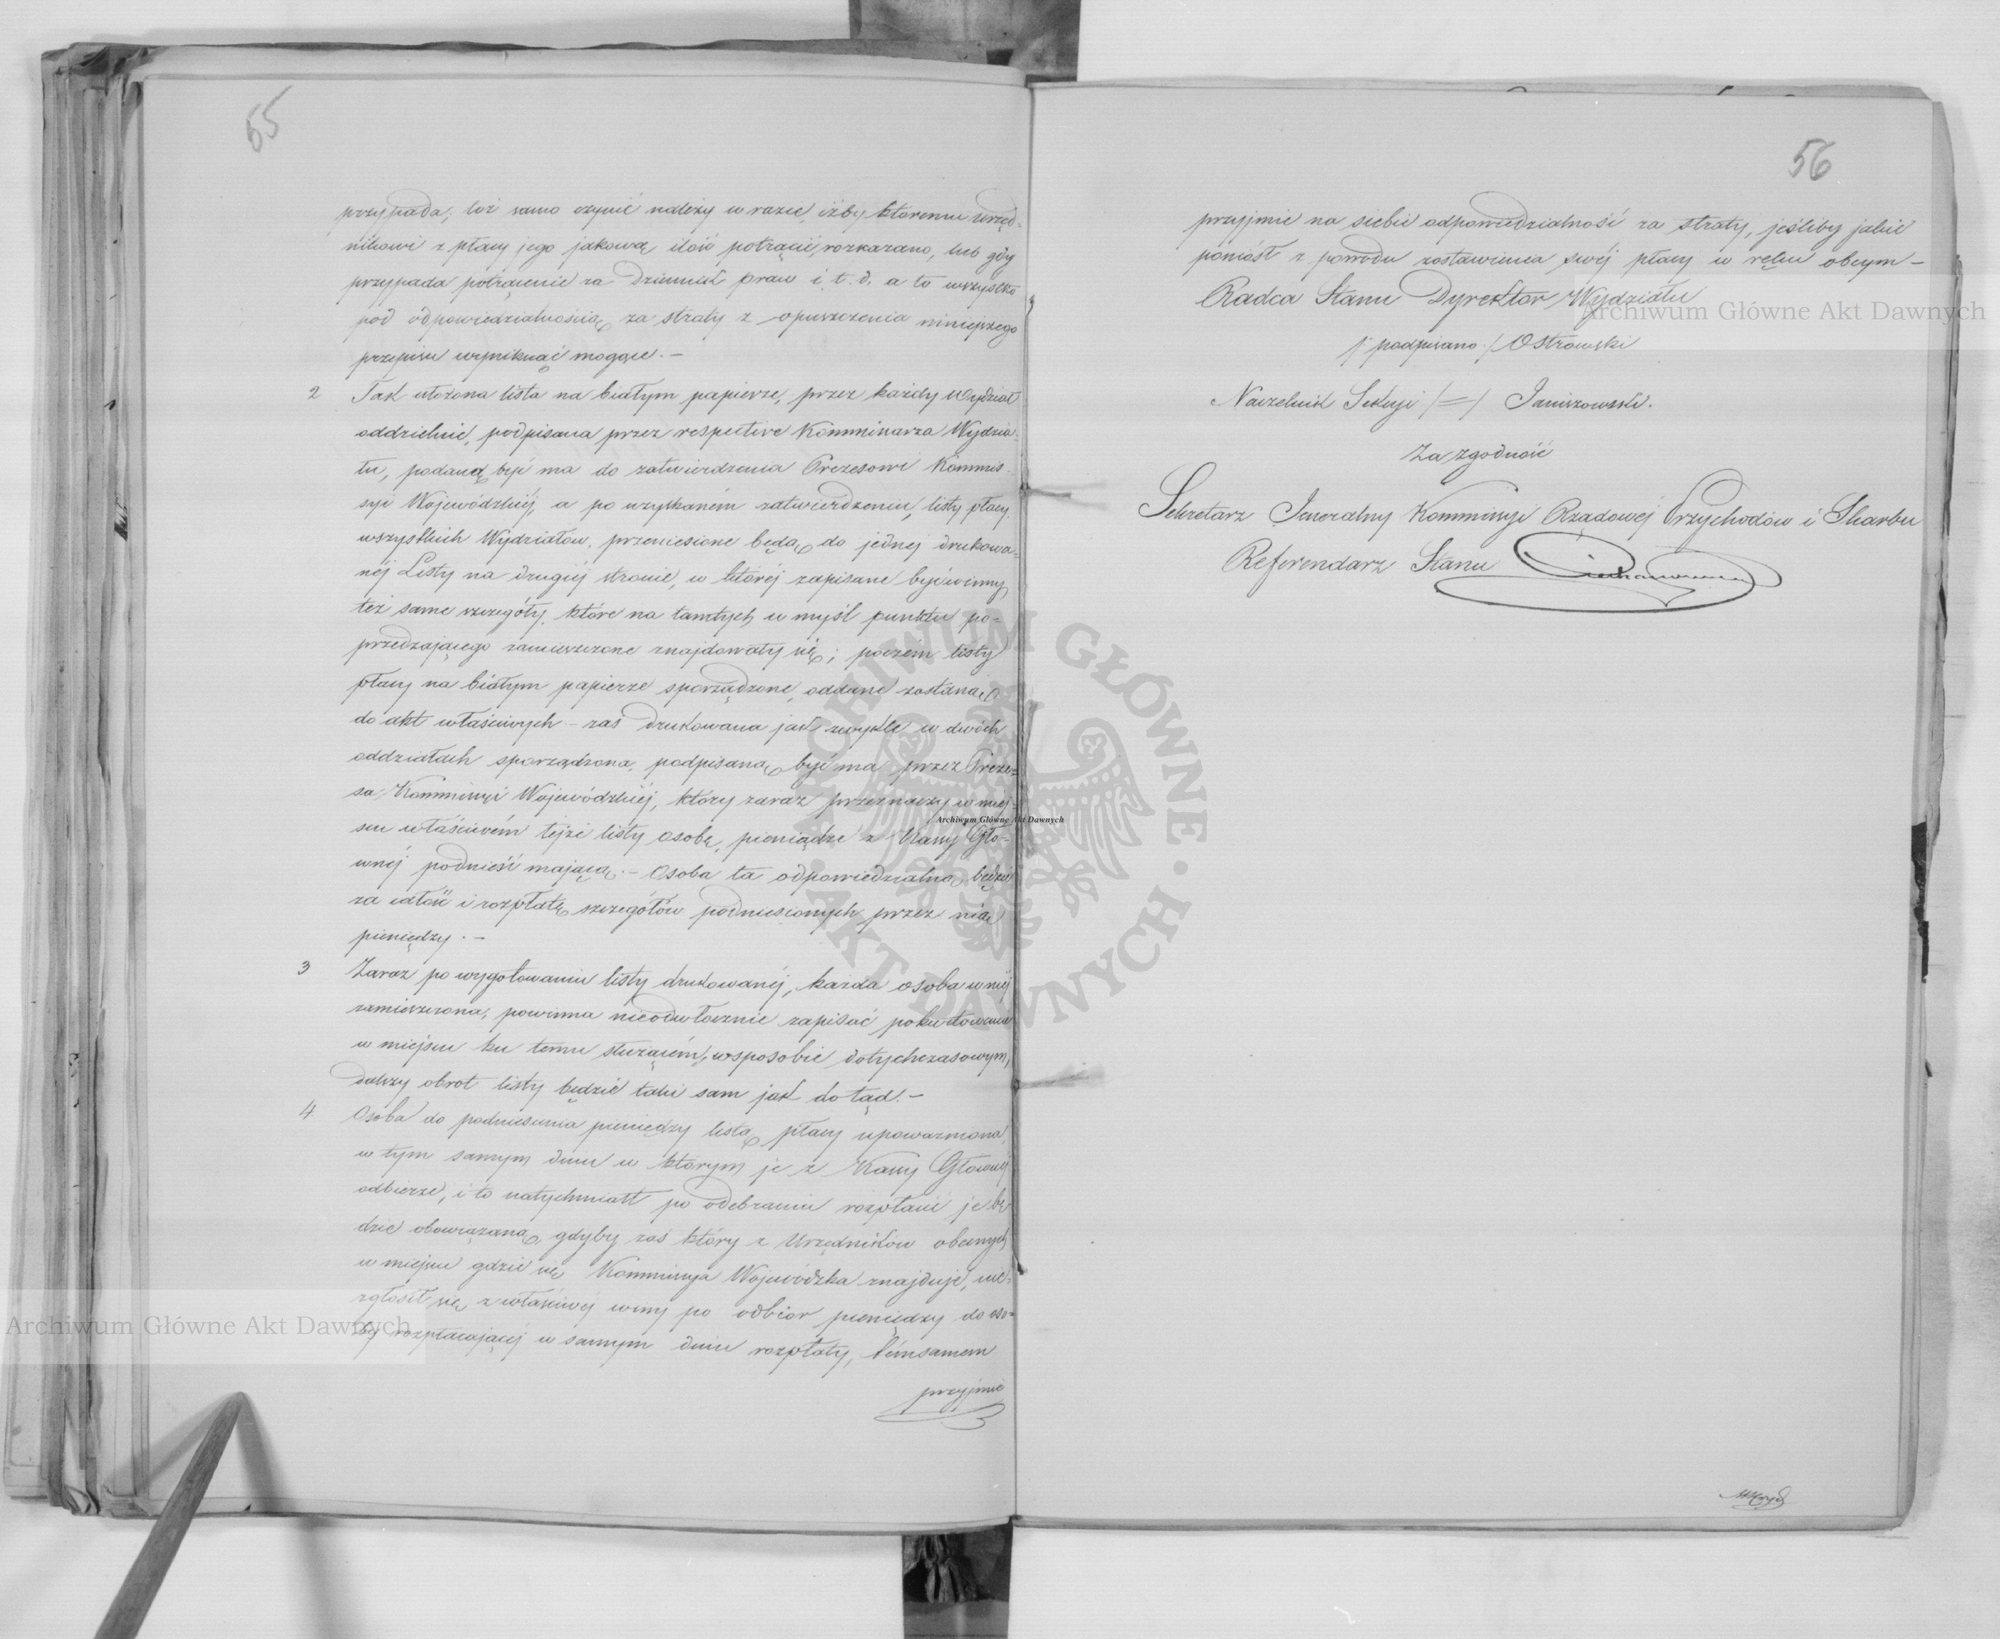 55
przypada; toż samo czynić należy w razie, iżby któremu Urzęd-
nikowi z płacy jego jakową ilość potrącić rozkazano, lub gdy
przypada potrącenie za Dziennik praw i. t. d. a to wszystko
pod odpowiedzialnością za straty z opuszczenia niniejszego
przepisu wyniknąć mogące. –
2 Tak ułożona lista na białym papierze, przez każdy Wydział
oddzielnie, podpisana przez respective Kommissarza Wydzia-
łu, podaną być ma do zatwierdzenia Prezesowi Kommis-
syi Wojewódzkiéj, a po uzyskaném zatwierdzeniu, listy płacy
wszystkich Wydziałów, przeniesione będą do jednej drukowa-
néj Listy na drugiéj stronie, w któréj zapisane być winny
też same szczegóły, które na tamtych w myśl punktu po-
przedzającego zamieszczone znajdowały się; poczém listy
płacy na białym papierze sporządzone, oddane zostaną
do akt właściwych – zaś drukowana jak zwykle w dwóch
oddziałach sporządzona, podpisaną być ma przez Preze-
sa Kommissyi Wojewódzkiéj, który zaraz przeznaczy w miej-
scu właściwém tejże listy osobę, pieniądze z Kassy Głó-
wnéj podnieść mającą. – Osoba ta odpowiedzialną będzie
za całość i rozpłatę szczegółów podniesionych przez nią
pieniędzy. –
3 Zaraz po wygotowaniu listy drukowanéj, każda osoba w niéj
zamieszczona, powinna nieodwłocznie zapisać pokwitowanie
w miejscu ku temu służącém, w sposobie dotychczasowym,
dalszy obrot listy będzie taki sam jak dotąd. –
4 Osoba do podniesienia pieniędzy listą płacy upoważniona,
w tym samym dniu w którym je z Kassy Głównéj
odbierze, i to natychmiast po odebraniu rozpłacić je bę-
dzie obowiązaną, gdyby zaś który z Urzędników obecnych
w miejscu gdzie się Kommissya Wojewódzka znajduje, nie-
zgłosił się z właściwéj winy po odbiór pieniędzy do oso-
by rozpłacającéj w samym dniu rozpłaty, témsamem
przyjmie
56
przyjmie na siebie odpowiedzialność za straty, jeśliby jakie
poniósł z powodu zostawienia swéj płacy w ręku obcym –
Radca Stanu Dyrektor Wydziału
/: podpisano :/ Ostrowski
Naczelnik Sekcyi /=/ Janiszowski.
Za zgodność
Sekretarz Jeneralny Kommissyi Rządowéj Przychodów i Skarbu
Referendarz Stanu
Archiwum Główne Akt Dawnych
Archiwum Główne Akt Dawnych
Archiwum Główne Akt Dawnych
ARCHIWUM GŁÓWNE · AKT DAWNYCH ·